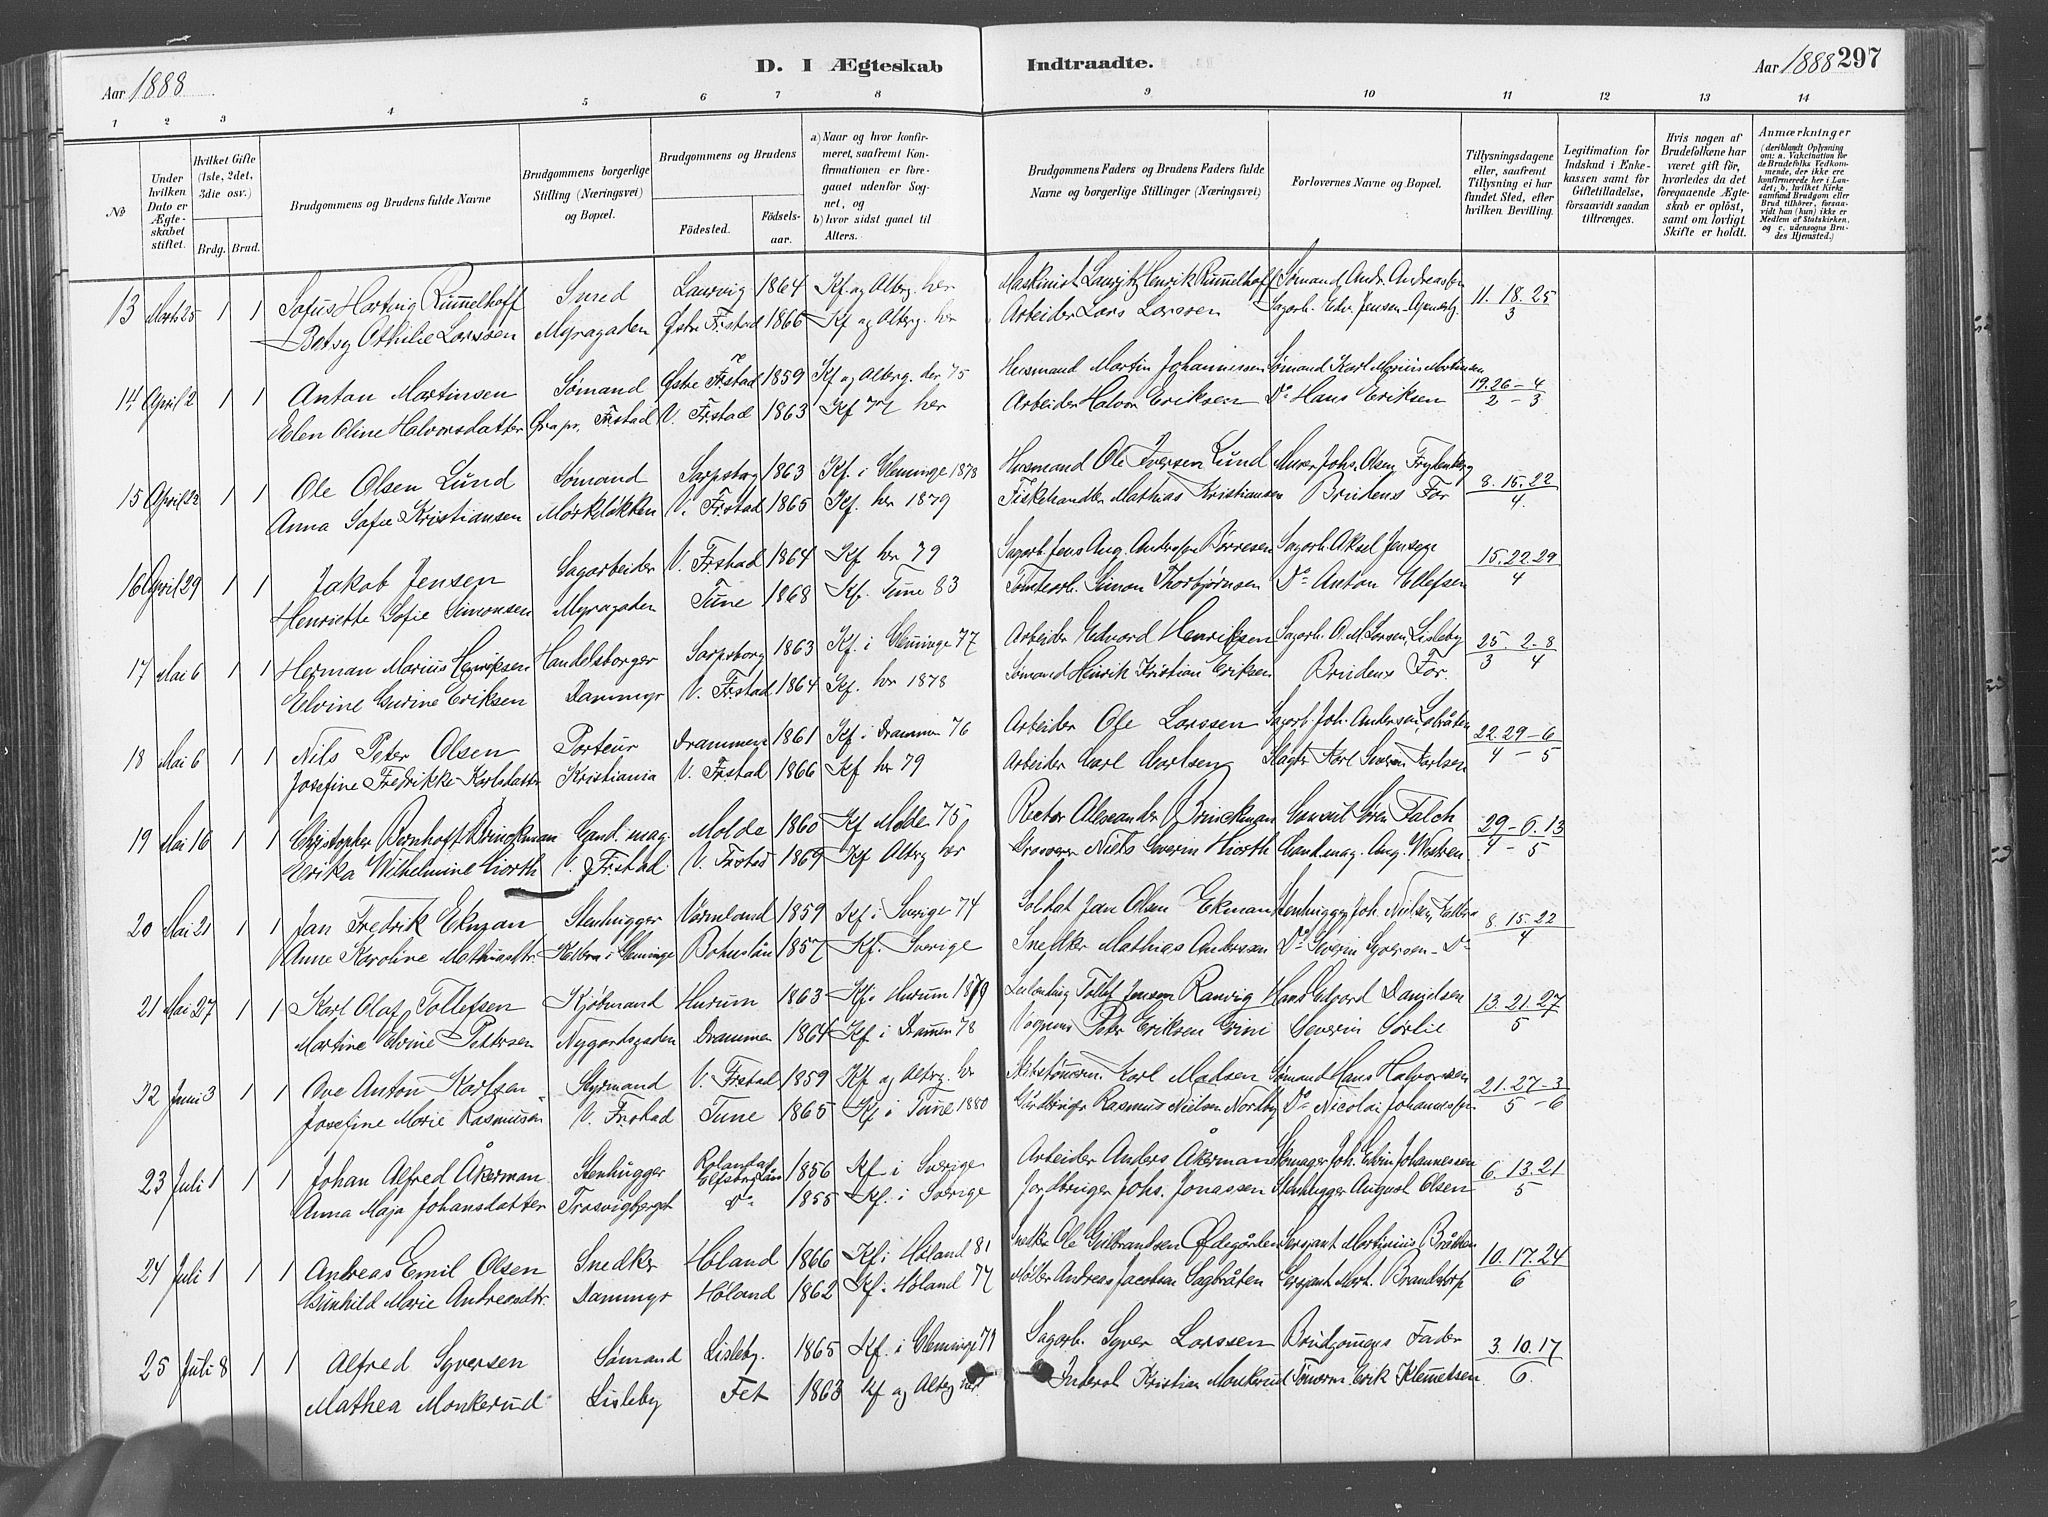 Aar 1888
D. I Ægteskab Indtraadte.
Aar 1888 297
1 2 3 4 5 6 7 8 9 10 11 12 13 14
No
Under hvilken Dato er Ægteskabet stiftet.
Hvilket Gifte (1ste, 2det, 3die osv.)
Brdg. Brud.
Brudgommens og Brudens fulde Navne
Brudgommens borgerlige Stilling (Næringsvei) og Bopæl.
Brudgommens og Brudens
Fødested. Fødselsaar.
a) Naar og hvor konfirmeret, saafremt Konfirmationen er foregaaet udenfor Sognet, og
b) hvor sidst gaaet til Alters.
Brudgommens Faders og Brudens Faders fulde Navne og borgerlige Stillinger (Næringsvei)
Forlovernes Navne og Bopæl.
Tillysningsdagene eller, saafremt Tillysning ei har fundet Sted, efter hvilken Bevilling.
Legitimation for Indskud i Enkekassen samt for Giftetilladelse, forsaavidt saadan tiltrænges.
Hvis nogen af Brudefolkene har været gift før, hvorledes da det foregaaende Ægteskab er opløst, samt om lovligt Skifte er holdt.
Anmærkninger (deriblandt Oplysning om: a. Vakcination for de Brudefolks Vedkommende, der ikke ere konfirmerede her i Landet; b. hvilket Kirkesamfund Brudgom eller Brud tilhører, forsaavidt han (hun) ikke er Medlem af Statskirken, og c. udensogns Brudes Hjemsted.)
13 Marts 25 1 1 Sofus Hartvig Rummelhoff Smed Laurvig 1864 Kf og Alterg. her Maskinist Lauritz Henrik Rummelhoff Sømand Andr. Andreassen 11. 18. 25
Betsy Othilie Larssen Myragaden Østre Frstad 1866 Kf og Alterg. her Arbeider Lars Larssen Sagarb. Edv. Jensen 3
14 April 2 1 1 Anton Martinsen Sømand Østre Frstad 1859 Kf og Alterg. der 75 Husmand Martin Johannessen Sømand Karl Marius Martinsen 19. 26 - 4
Elen Oline Halvorsdatter Frstad V. Frstad 1863 Kf 77 her Arbeider Halvor Eriksen Do Hans Eriksen 2 - 3
15 April 22 1 1 Ole Olsen Lund Sømand Sarpsborg 1863 Kf. i Glemminge 1878 Husmand Ole Iversen Lund Murer Johs. Olsen Frydenberg 8. 15. 22
Anna Sofie Kristiansen V. Frstad 1865 Kf. her 1879 Fiskehandler Mathias Kristiansen Brudens Far 4.
16 April 29 1 1 Jakob Jensen Sagarbeider V. Frstad 1864 Kf her 79 Sagarb. Jens Aug. Børresen Sagarb. Aksel 15. 22. 29
Henriette Sofie Simonsen Myragaden Tune 1868 Kf. Tune 83 Tomtearb. Simon Thorbjørnsen Do Anton Ellefsen 4
17 Mai 6 1 1 Herman Marius Henriksen Handelsborger Sarpsborg 1863 Kf. i Glemminge 77 Arbeider Edvard Henriksen Sagarb. O. M. Larsen, Lisleby 25. 2. 8
Elvine Gurine Eriksen Dammyr V. Frstad 1864 Kf. her 1878 Sømand Heinrik Kristian Eriksen Brudens Far. 3 4
18 Mai 6 1 1 Nils Peter Olsen Porteur Drammen 1861 Kf. i Drammen 76 Arbeider Ole Larssen Sagarb. Joh. Andersen 22. 29 - 6
Josefine Fredrikke Karlsdatter Kristiania V. Frstad 1866 Kf her 79 Arbeider Carl Carlsen Slagter Karl Severin Karlsen 4 - 5
19 Mai 16 1 1 Christopher Bernhoft Brinckman Cand. mag. Molde 1860 Kf Molde 75 Rector Alexander Brinckman Consul Søren Falch 29 - 6. 13
Erika Wilhelmine Hiorth V. Frstad V. Frstad 1869 Kf Alterg her Grosserer Niels Severin Hiorth Cand. mag. Aug. Western 4 - 5
20 Mai 21 1 1 Jan Fredrik Ekman Stenhugger Värmland 1859 Kf i Sverige 74 Soldat Jan Olsen Ekman Stenhugger Joh. Nielsen, 8. 15. 22
Anne Karoline Mathiasdtr. Glemminge Bohuslän 1857 Kf. Sverige Snedker Mathias Anderssen Do Severin Syversen - Do 4
21 Mai 27 1 1 Karl Olaf Tollefsen Kjøbmand Hurum 1863 Kf. i Hurum 1879 Tollef Jensen Ranvig Hans Edvard Danielsen 13. 21. 27
Martine Elvine Pettersen Nygaardsgaden Drammen 1864 Kf. i Drammen 78 Peter Eriksen Severin Sørlie 5
22 Juni 3 1 1 Ove Anton Karlsen Styrmand V. Frstad 1859 Kf og Alterg. her Skibstømerm. Karl Madsen Sømand Hans Halvorssen 21. 27 - 3
Josefine Marie Rasmussen V. Frstad Tune 1865 Kf i Tune 1880 Gårdbruger Rasmus Nielsen Nordby Do Nicolai Johannessen 5 - 6
23 Juli 1 1 1 Johan Alfred Åkerman Stenhugger Elfsborg Län 1856 Kf. i Sverige Arbeider Anders Åkerman Skomager Joh. Edvin Johannessen 6. 13. 21
Anna Maja Johansdatter Trosvigberget Do 1855 Kf. i Sverige Jordbruger Johs. Jonassen Stenhugger August Olsen 5
24 Juli 1 1 1 Andreas Emil Olsen Snedker Høland 1866 Kf i Høland 81 Snedker Ole Gulbrandsen Ødegården Sersjant Martinius Bråthen 10. 17. 24
Gunhild Marie Andreasdtr. Dammyr Høland 1862 Kf. i Høland 77 Møller Andreas Jacobsen Sagbråten Sersjant Mart. Brandstorp 6
25 Juli 8 1 1 Alfred Syversen Sømand Lisleby. 1865 Kf. i Glemminge 79 Sagarb. Syver Larssen Brudgomens Fader 3. 10. 17
Mathea Monkerud Lisleby Fet 1863 Kf og Alterg her. Inderst Kristian Monkerud Tømerm. Erik Klemetsen 6.